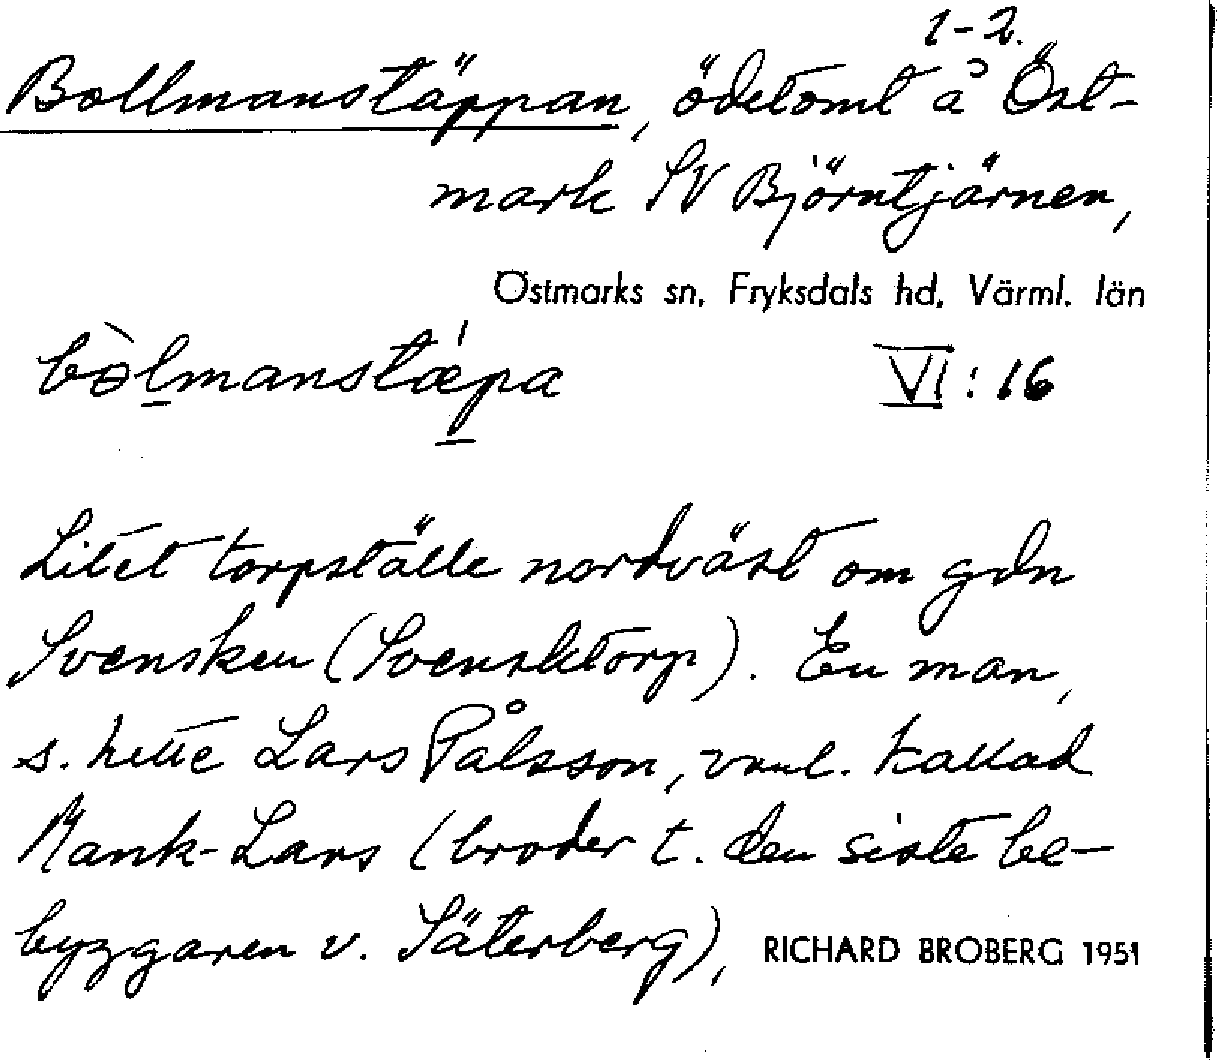 1-2.
Bollmanstäppan, ödetomt å Öst-
mark SV Björntjärnen,
Östmarks sn, Fryksdals hd, Värml. län
bòlmanstǽpa VI:16
Litet torpställe nordväst om gdn
Svensken (Svensktorp). En man,
s. hette Lars Pålsson, vanl. kallad
Mank-Lars (broder t. den siste be-
byggaren v. Säterberg),
RICHARD BROBERG 1951